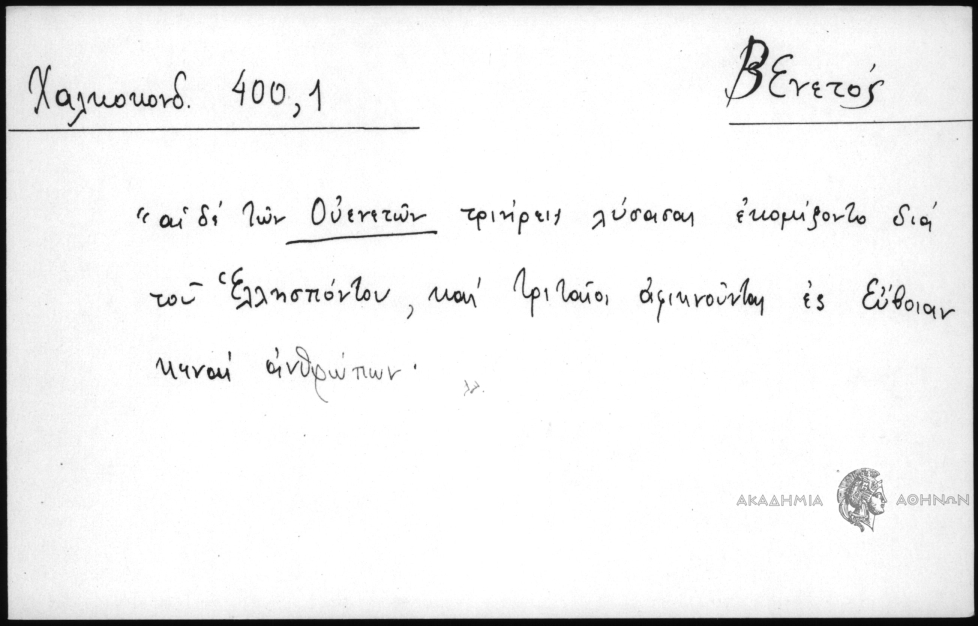 Χαλκοκονδ. 400,1
Βενετός
"αἱ δὲ τῶν Οὐενετῶν τριήρεις λύσασαι ἐκομίζοντο διὰ
τοῦ Ἑλλησπόντου, καὶ τριταῖοι ἀφικνοῦνται ἐς Εὔβοιαν
κεναὶ ἀνθρώπων.
ΑΚΑΔΗΜΙΑ ΑΘΗΝΩΝ